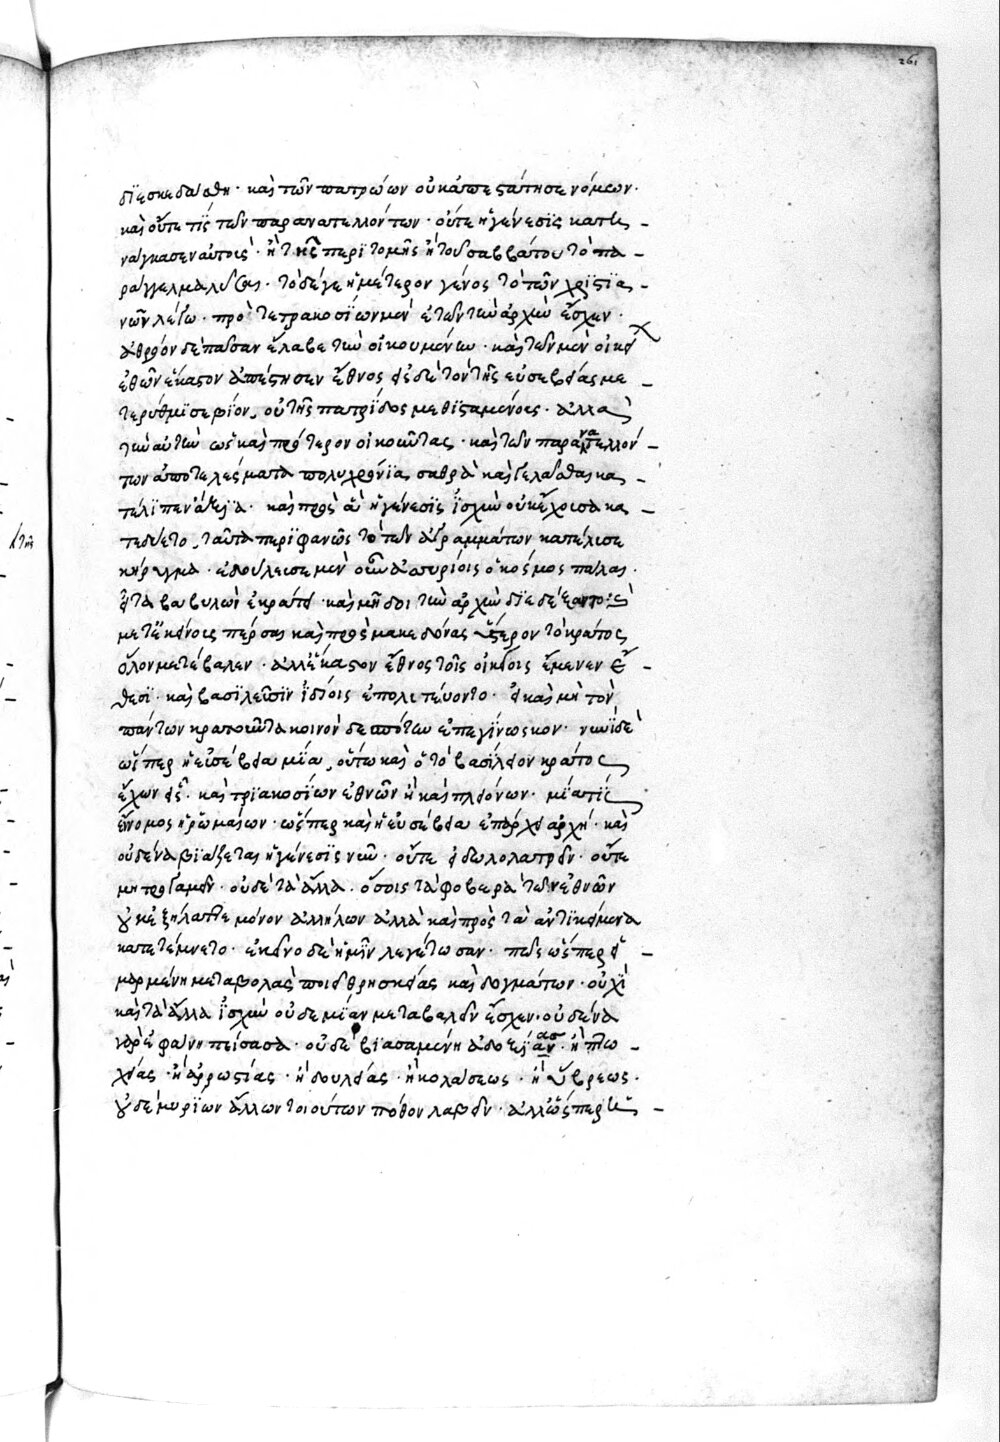 261
διεσκεδάσθη · καὶ τῶν πατρώων οὐκ ἀπεστάτησε νόμων ·
καὶ οὔτε τίς τῶν παρανατελλόντων · οὔτε ἡ γένεσις κατη
νάγκασεν αὐτοὺς · ἢ τῆς περιτομῆς ἢ τοῦ σαββάτου τὸ πα
ράγγελμα λῦσαι · τὸ δέ γε ἡμέτερον γένος τὸ τῶν χριστια
νῶν λέγω · πρὸ τετρακοσίων μὲν ἐτῶν τὴν ἀρχὴν ἔσχεν ·
ἀθρόον δὲ πᾶσαν ἔλαβε τὴν οἰκουμένην · καὶ τῶν μὲν οἰκεί
ἐθῶν ἕκαστον ἀπέστησεν ἔθνος εἰς δὲ τὸν τῆς εὐσεβείας με
τερύθμισε βίον, οὐ τῆς πατρίδος μεθισταμένους · ἀλλὰ
τὴν αὐτὴν ὡς καὶ πρότερον οἰκοῦντας · καὶ τῶν παρανατελλόν
των ἀποτελέσματα πολυχρόνια, σαθρὰ καὶ γελᾶσθαι κα
ταλιπεῖν ἄξια · καὶ πρὸς ἃ ἡ γένεσις ἰσχὺν οὐκ ἔχουσα κα
τεδύετο, ταῦτα περιφανῶς τὸ τῶν ἀγραμμάτων κατέλυσε
κήρυγμα · ἐδούλευσε μὲν οὖν ἀσυρίοις ὁ κόσμος πάλαι ·
εἶτα βαβυλὼν ἐκράτει · καὶ μῆδοι τὴν ἀρχὴν διεδέξαντο ·
μετ' ἐκείνους πέρσαι καὶ πρὸς μακεδόνας ὕστερον τὸ κράτος
ὅλον μετέβαλεν · ἀλλ' ἕκαστον ἔθνος τοῖς οἰκείοις ἔμενεν ἔ
θεσι · καὶ βασιλεῦσιν ἰδίοις ἐπολιτεύοντο · εἰ καὶ μὴ τὸν
πάντων κρατοῦντα κοινὸν δεσπότην ἐπεγίνωσκον · νυνὶ δὲ
ὥσπερ ἡ εὐσέβεια μία, οὕτω καὶ ὁ τὸ βασίλειον κράτος
ἔχων εἷς · καὶ τριακοσίων ἐθνῶν ἢ καὶ πλειόνων · μία τίς
ἔννομος ἡ ῥωμαίων · ὥσπερ καὶ ἡ εὐσέβεια ἐπάρχει ἀρχή · καὶ
οὐδένα βιάζεται ἡ γένεσις νῦν · οὔτε εἰδωλολατρεῖν · οὔτε
μητρογαμεῖν · οὐδὲ τὰ ἄλλα · οἷστισι τὰ φοβερὰ τῶν ἐθνῶν
οὐκ ἐξήλαττε μόνον ἀλλήλων ἀλλὰ καὶ πρὸς τὰ ἀντικείμενα
κατετέμνετο · ἐκεῖνο δὲ ἡμῖν λεγέτωσαν · πῶς ὥσπερ εἱ
μαρμένη μεταβολὰς ποιεῖ θρησκείας καὶ δογμάτων · οὐχὶ
καὶ τὰ ἄλλα ἰσχὺν οὐδεμίαν μεταβαλεῖν ἔσχεν · οὐδένα
γὰρ ἐφάνη πείσασα · οὐδὲ βιασαμένη ἀδοξίας · ἢ πτω
χείας · ἢ ἀρρωστίας · ἢ δουλείας · ἢ κολάσεως · ἢ ὕβρεως ·
οὐδὲ μυρίων ἄλλων τοιούτων πόθον λαβεῖν · ἀλλ' ὥσπερ